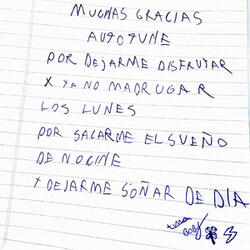 MUCHAS GRACIAS
AUTOTUNE
POR DEJARME DISFRUTAR
X YA NO MADRUGAR
LOS LUNES
POR SACARME EL SUEÑO
DE NOCHE
Y DEJARME SOÑAR DE DÍA